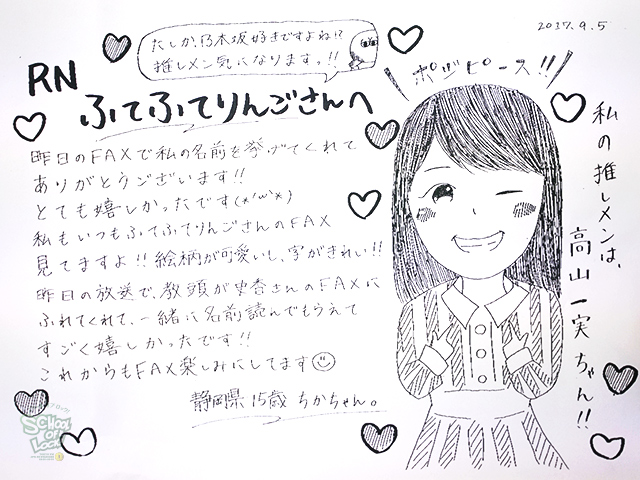 2017.9.5
たしか、乃木坂好きですよね!?
推しメン気になりますっ!!
RN
ふてふてりんごさんへ
昨日のFAXで私の名前を挙げてくれて
ありがとうございます!!
とても嬉しかったです(*'ω'*)
私もいつもふてふてりんごさんのFAX
見てますよ!!絵柄が可愛いし、字がきれい!!
昨日の放送で、教頭が史杏さんのFAXに
ふれてくれて、一緒に名前読んでもらえて
すごく嬉しかったです!!
これからもFAX楽しみにしてます
静岡県 15歳 ちかちゃん。
ポジピース!!
私の推しメンは、
高山一実ちゃん!!
SCHOOL OF LOCK!